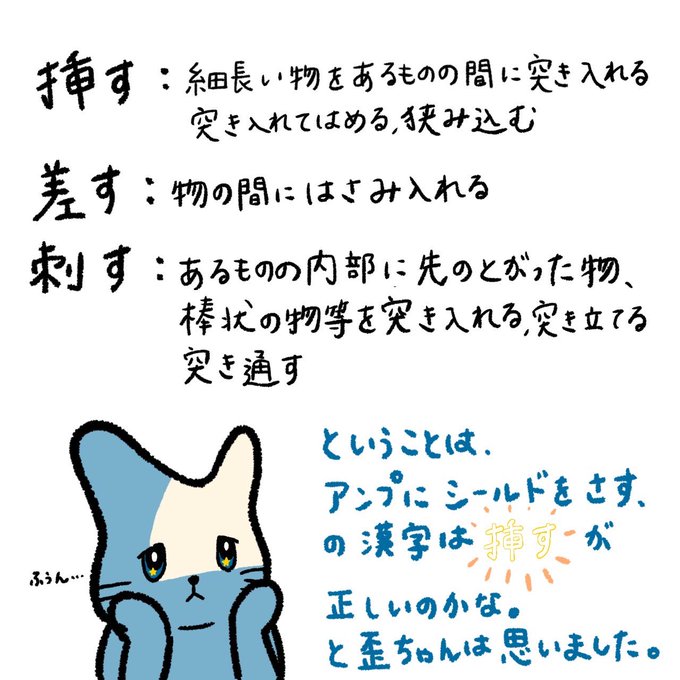 挿す：細長い物をあるものの間に突き入れる
突き入れてはめる,狭み込む
差す：物の間にはさみ入れる
刺す：あるものの内部に先のとがった物、
棒状の物等を突き入れる,突き立てる
突き通す
ということは、
アンプにシールドをさす、
の漢字は挿すが
正しいのかな。
と歪ちゃんは思いました。
ふぅん…